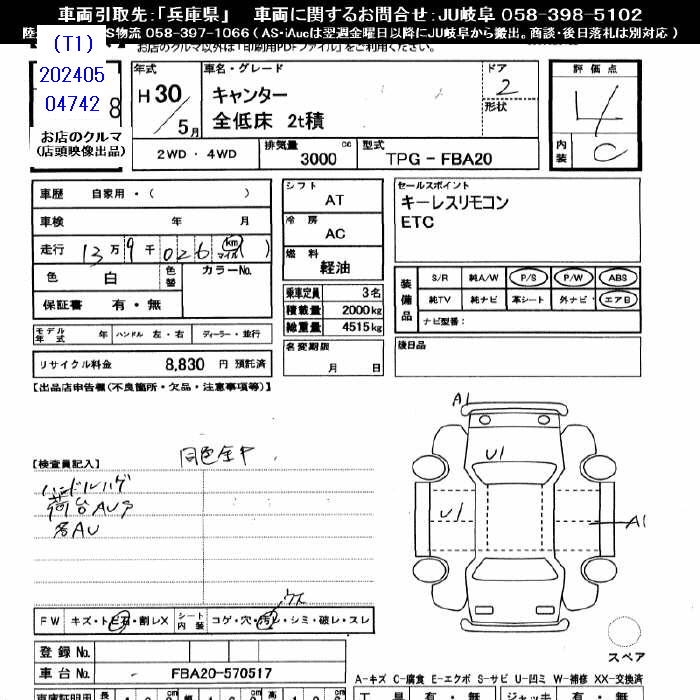 車両引取先:｢兵庫県｣　車両に関するお問合せ:JU岐阜 058-398-5102
S物流 058-397-1066 ( AS･iAucは翌週金曜日以降にJU岐阜から搬出｡商談･後日落札は別対応 )
お店のクルマ以外は｢印刷用PDFファイル｣をご利用ください｡
(T1)
202405
04742
8
お店のクルマ
(店頭映像出品)
年式
H 30/5月
車名・グレード
キャンター
全低床 2t積
ドア
2
形状
評価点
4
内装
C
2WD ・ 4WD
排気量
3000 cc
型式
TPG－FBA20
車歴 自家用・( )
車検 年 月
走行 13万9千026 km マイル ( )
色 白 色替 カラーNo.
保証書 有・無
モデル年式 年 ハンドル 左・右 ディーラー・並行
リサイクル料金 8,830 円 預託済
シフト
AT
冷房
AC
燃料
軽油
乗車定員 3名
積載量 2000kg
総重量 4515kg
名変期限
月 日
セールスポイント
キーレスリモコン
ETC
装備品
S/R 純A/W P/S P/W ABS
純TV 純ナビ 革シート 外ナビ エアB
ナビ型番:
後日品
【出品店申告欄(不良箇所・欠品・注意事項等)】
【検査員記入】
ハンドルハゲ
荷台AUサ
各AU
A1
U1
U1
A1
FW キズ・トビ石・割レX シート内装 コゲ・穴・汚レ・シミ・破レ・スレ
スペア
登録No.
車台No. FBA20-570517
A-キズ C-腐食 E-エクボ S-サビ U-凹ミ W-補修 XX-交換済
車庫証明用
工具 有・無 ジャッキ 有・無